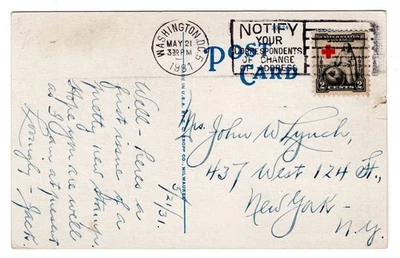 WASHINGTON, D.C. 6
MAY 21
3 30 PM
1931
NOTIFY
YOUR
CORRESPONDENTS
OF CHANGE
OF ADDRESS
POST
CARD
2 CENTS 2
Well - here's a
first issue of a
pretty new stamp,
Hope you are well
as I am at present
Lovingly - Jack.
5/21/31.
Mrs. John W Lynch,
437 West 124 St.,
New York -
N.Y.